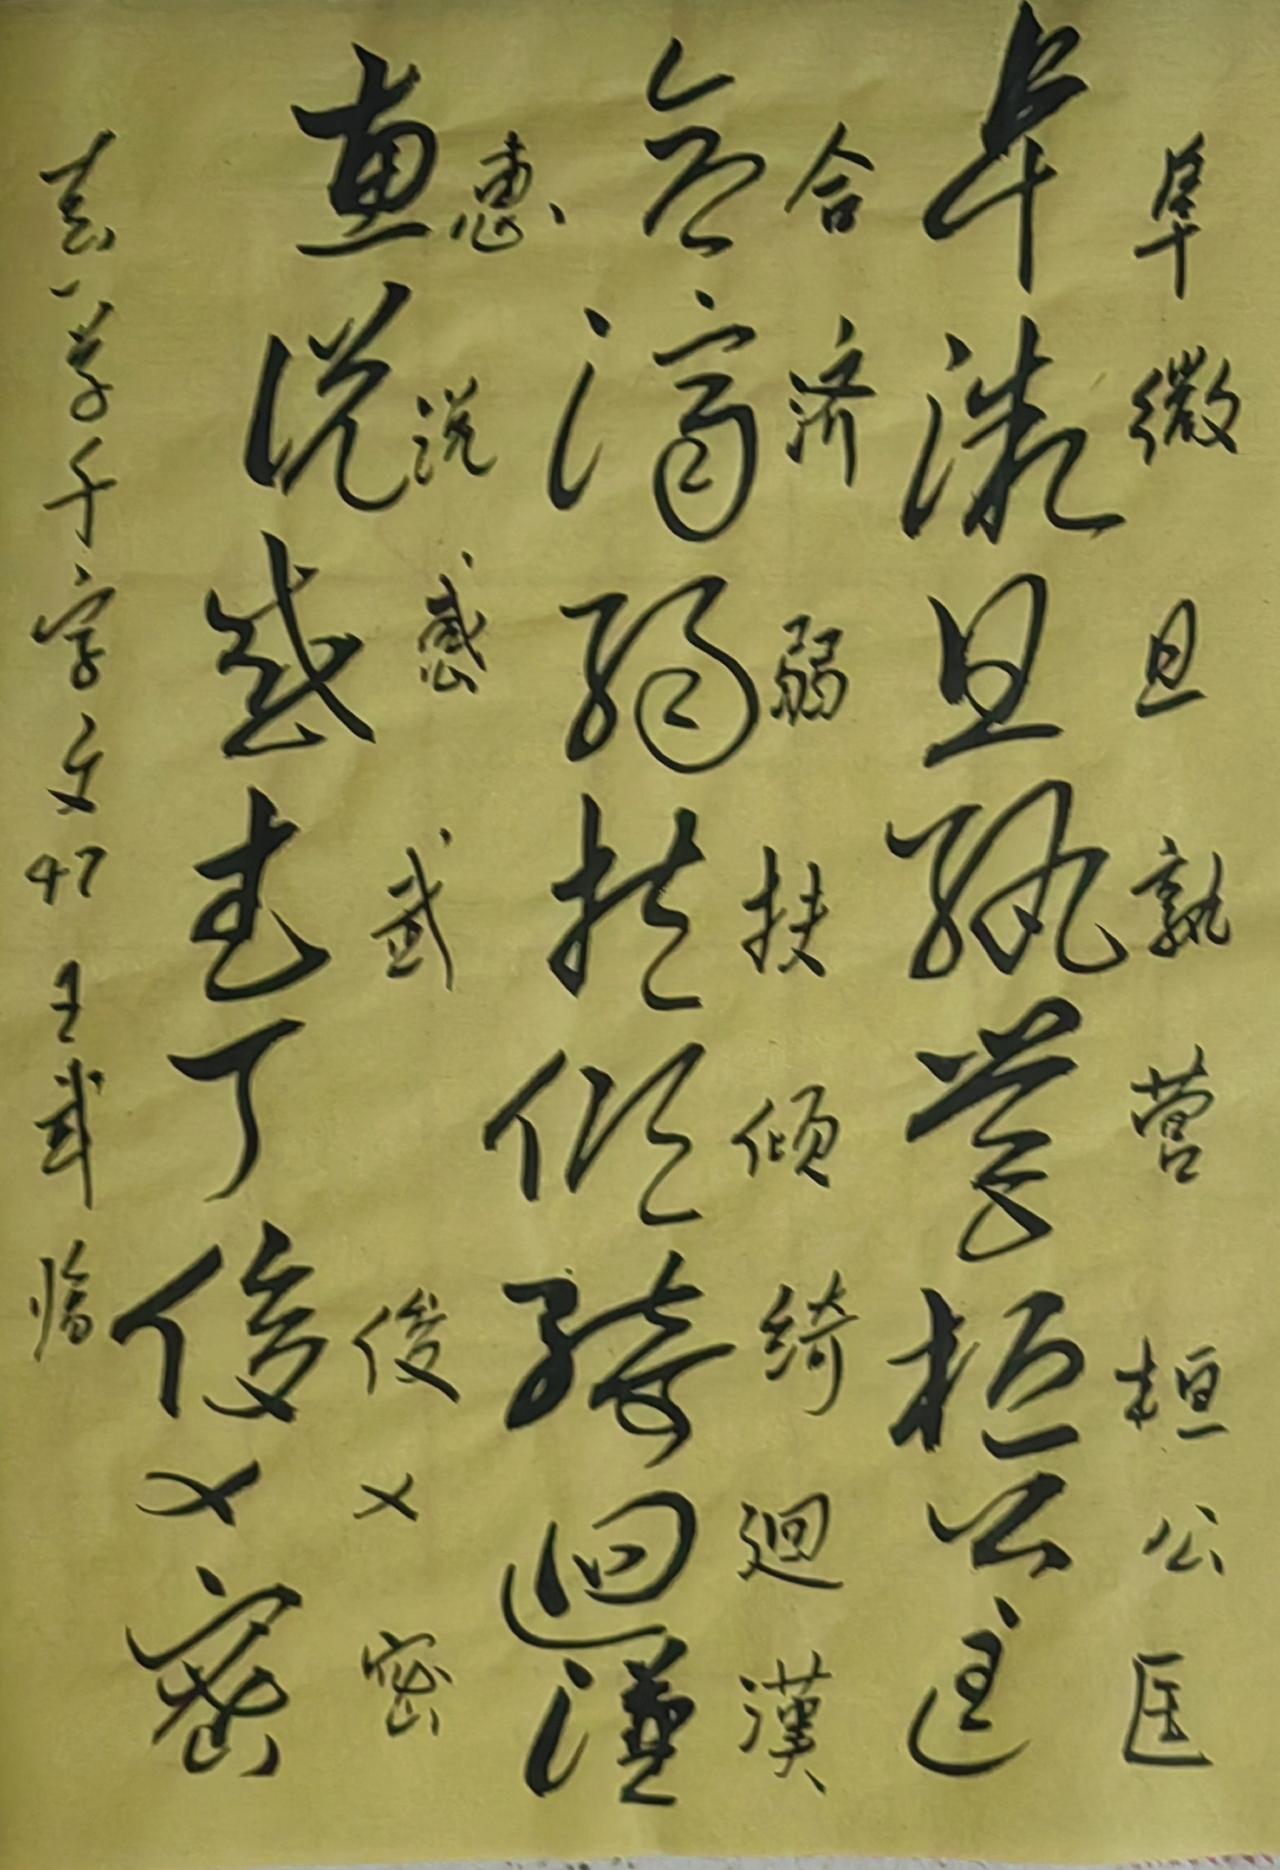 阜微旦孰营桓公匡
阜微旦孰營桓公匡
合济弱扶倾绮迴漢
合濟弱扶傾綺迴漢
惠说感武俊乂密
惠说感武丁俊乂密
素小草千字文47王武临